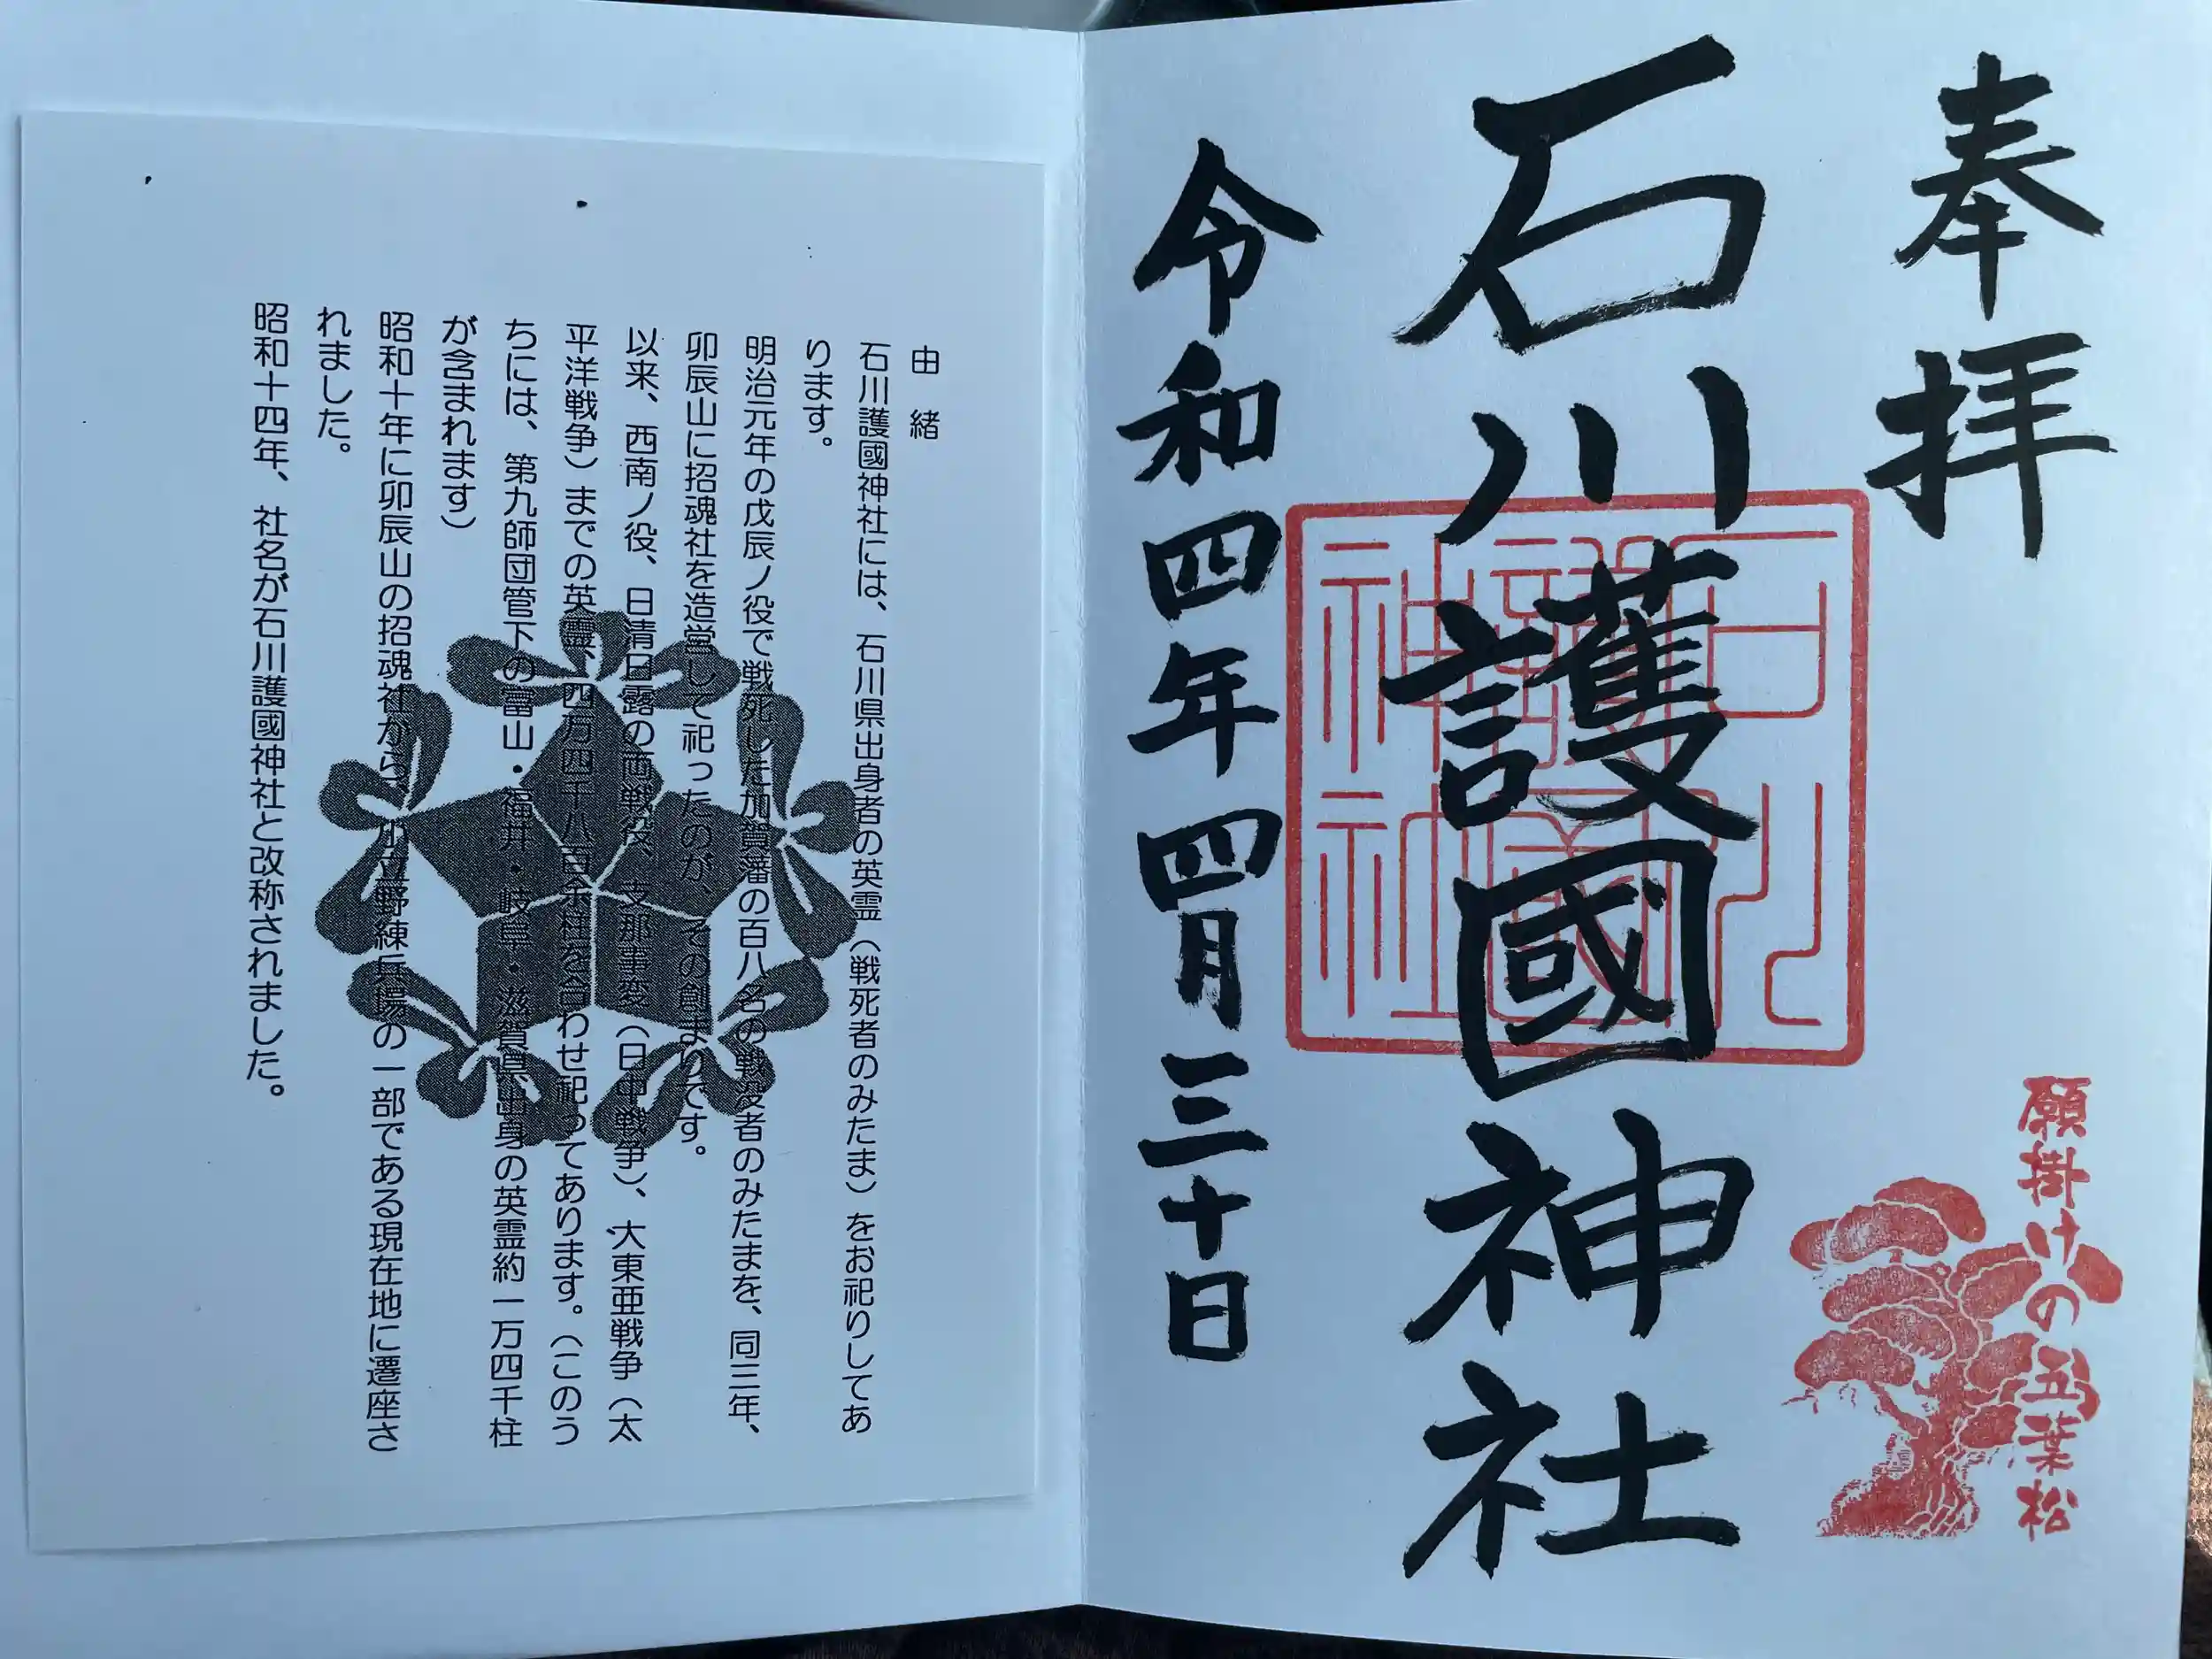 奉拝
願掛けの五葉松
石川護國神社
石川
護國
神社
令和四年四月三十日
由緒
石川護國神社には、石川県出身者の英霊（戦死者のみたま）をお祀りしてあ
ります。
明治元年の戊辰ノ役で戦死した加賀藩の百八名の戦没者のみたまを、同三年、
卯辰山に招魂社を造営して祀ったのが、その創まりです。
以来、西南ノ役、日清日露の両戦役、支那事変（日中戦争）、大東亜戦争（太
平洋戦争）までの英霊、四万四千八百余柱を合わせ祀ってあります。（このう
ちには、第九師団管下の富山・福井・岐阜・滋賀県出身の英霊約一万四千柱
が含まれます）
昭和十年に卯辰山の招魂社から、小立野練兵場の一部である現在地に遷座さ
れました。
昭和十四年、社名が石川護國神社と改称されました。